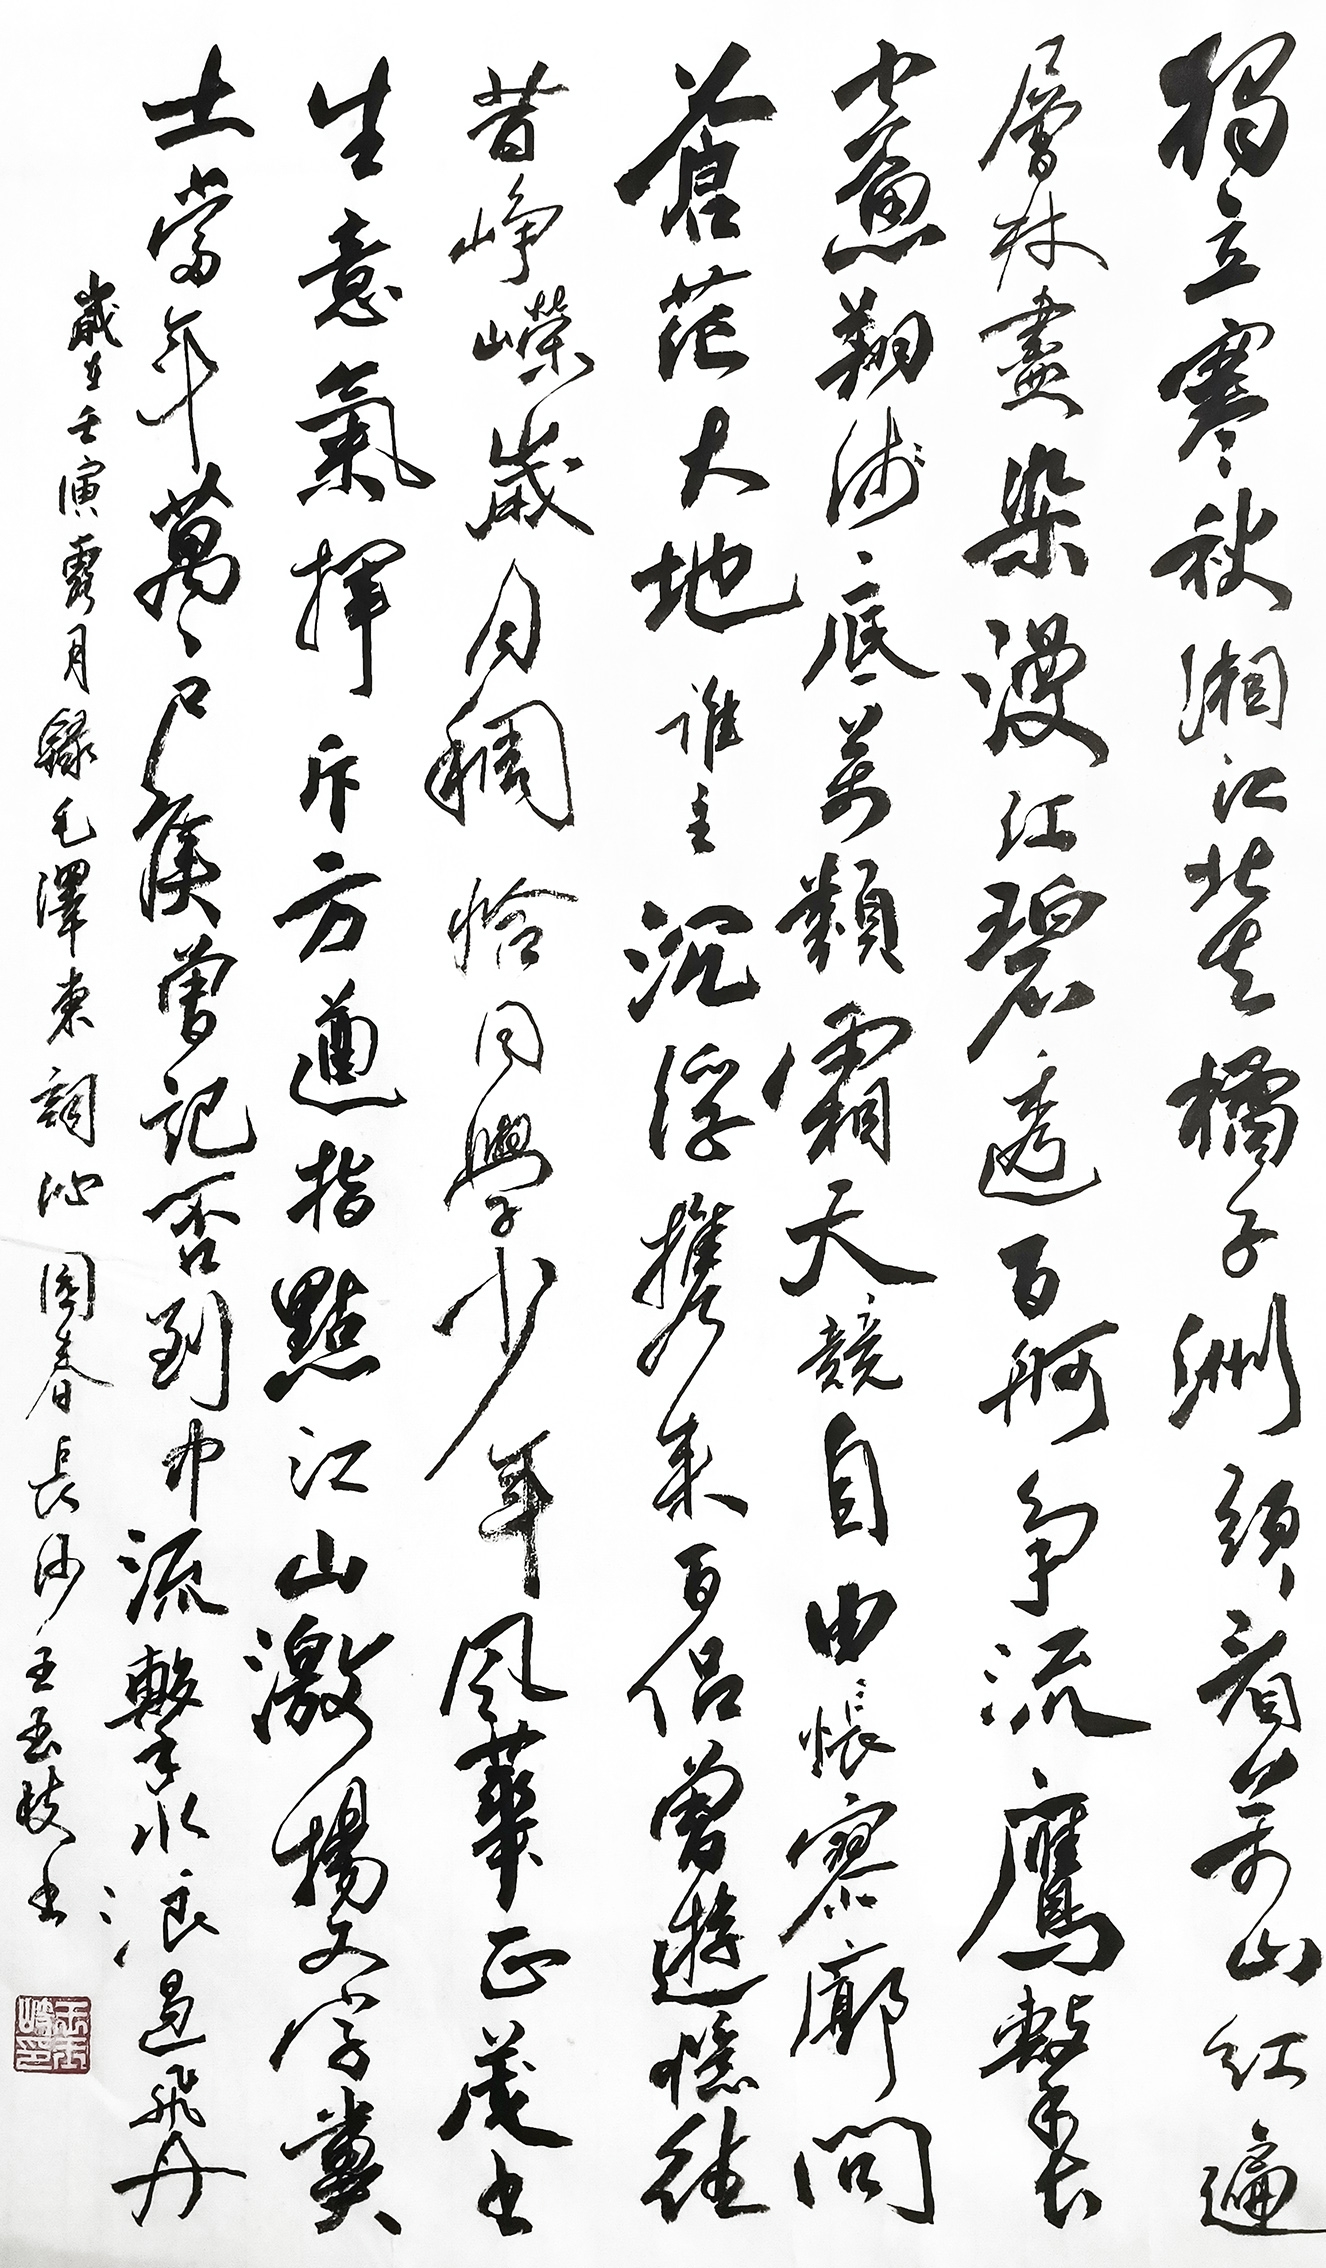 獨立寒秋湘江北去橘子洲頭看萬山紅遍
層林盡染漫江碧透百舸爭流鷹擊長
空魚翔淺底萬類霜天競自由悵寥廓問
蒼茫大地誰主沉浮攜來百侶曾遊憶往
昔崢嶸歲月稠恰同學少年風華正茂書
生意氣揮斥方遒指點江山激揚文字糞
土當年萬戶侯曾記否到中流擊水浪遏飛舟
歲在壬寅露月錄毛澤東詞沁園春長沙王玉岐書
王玉岐印